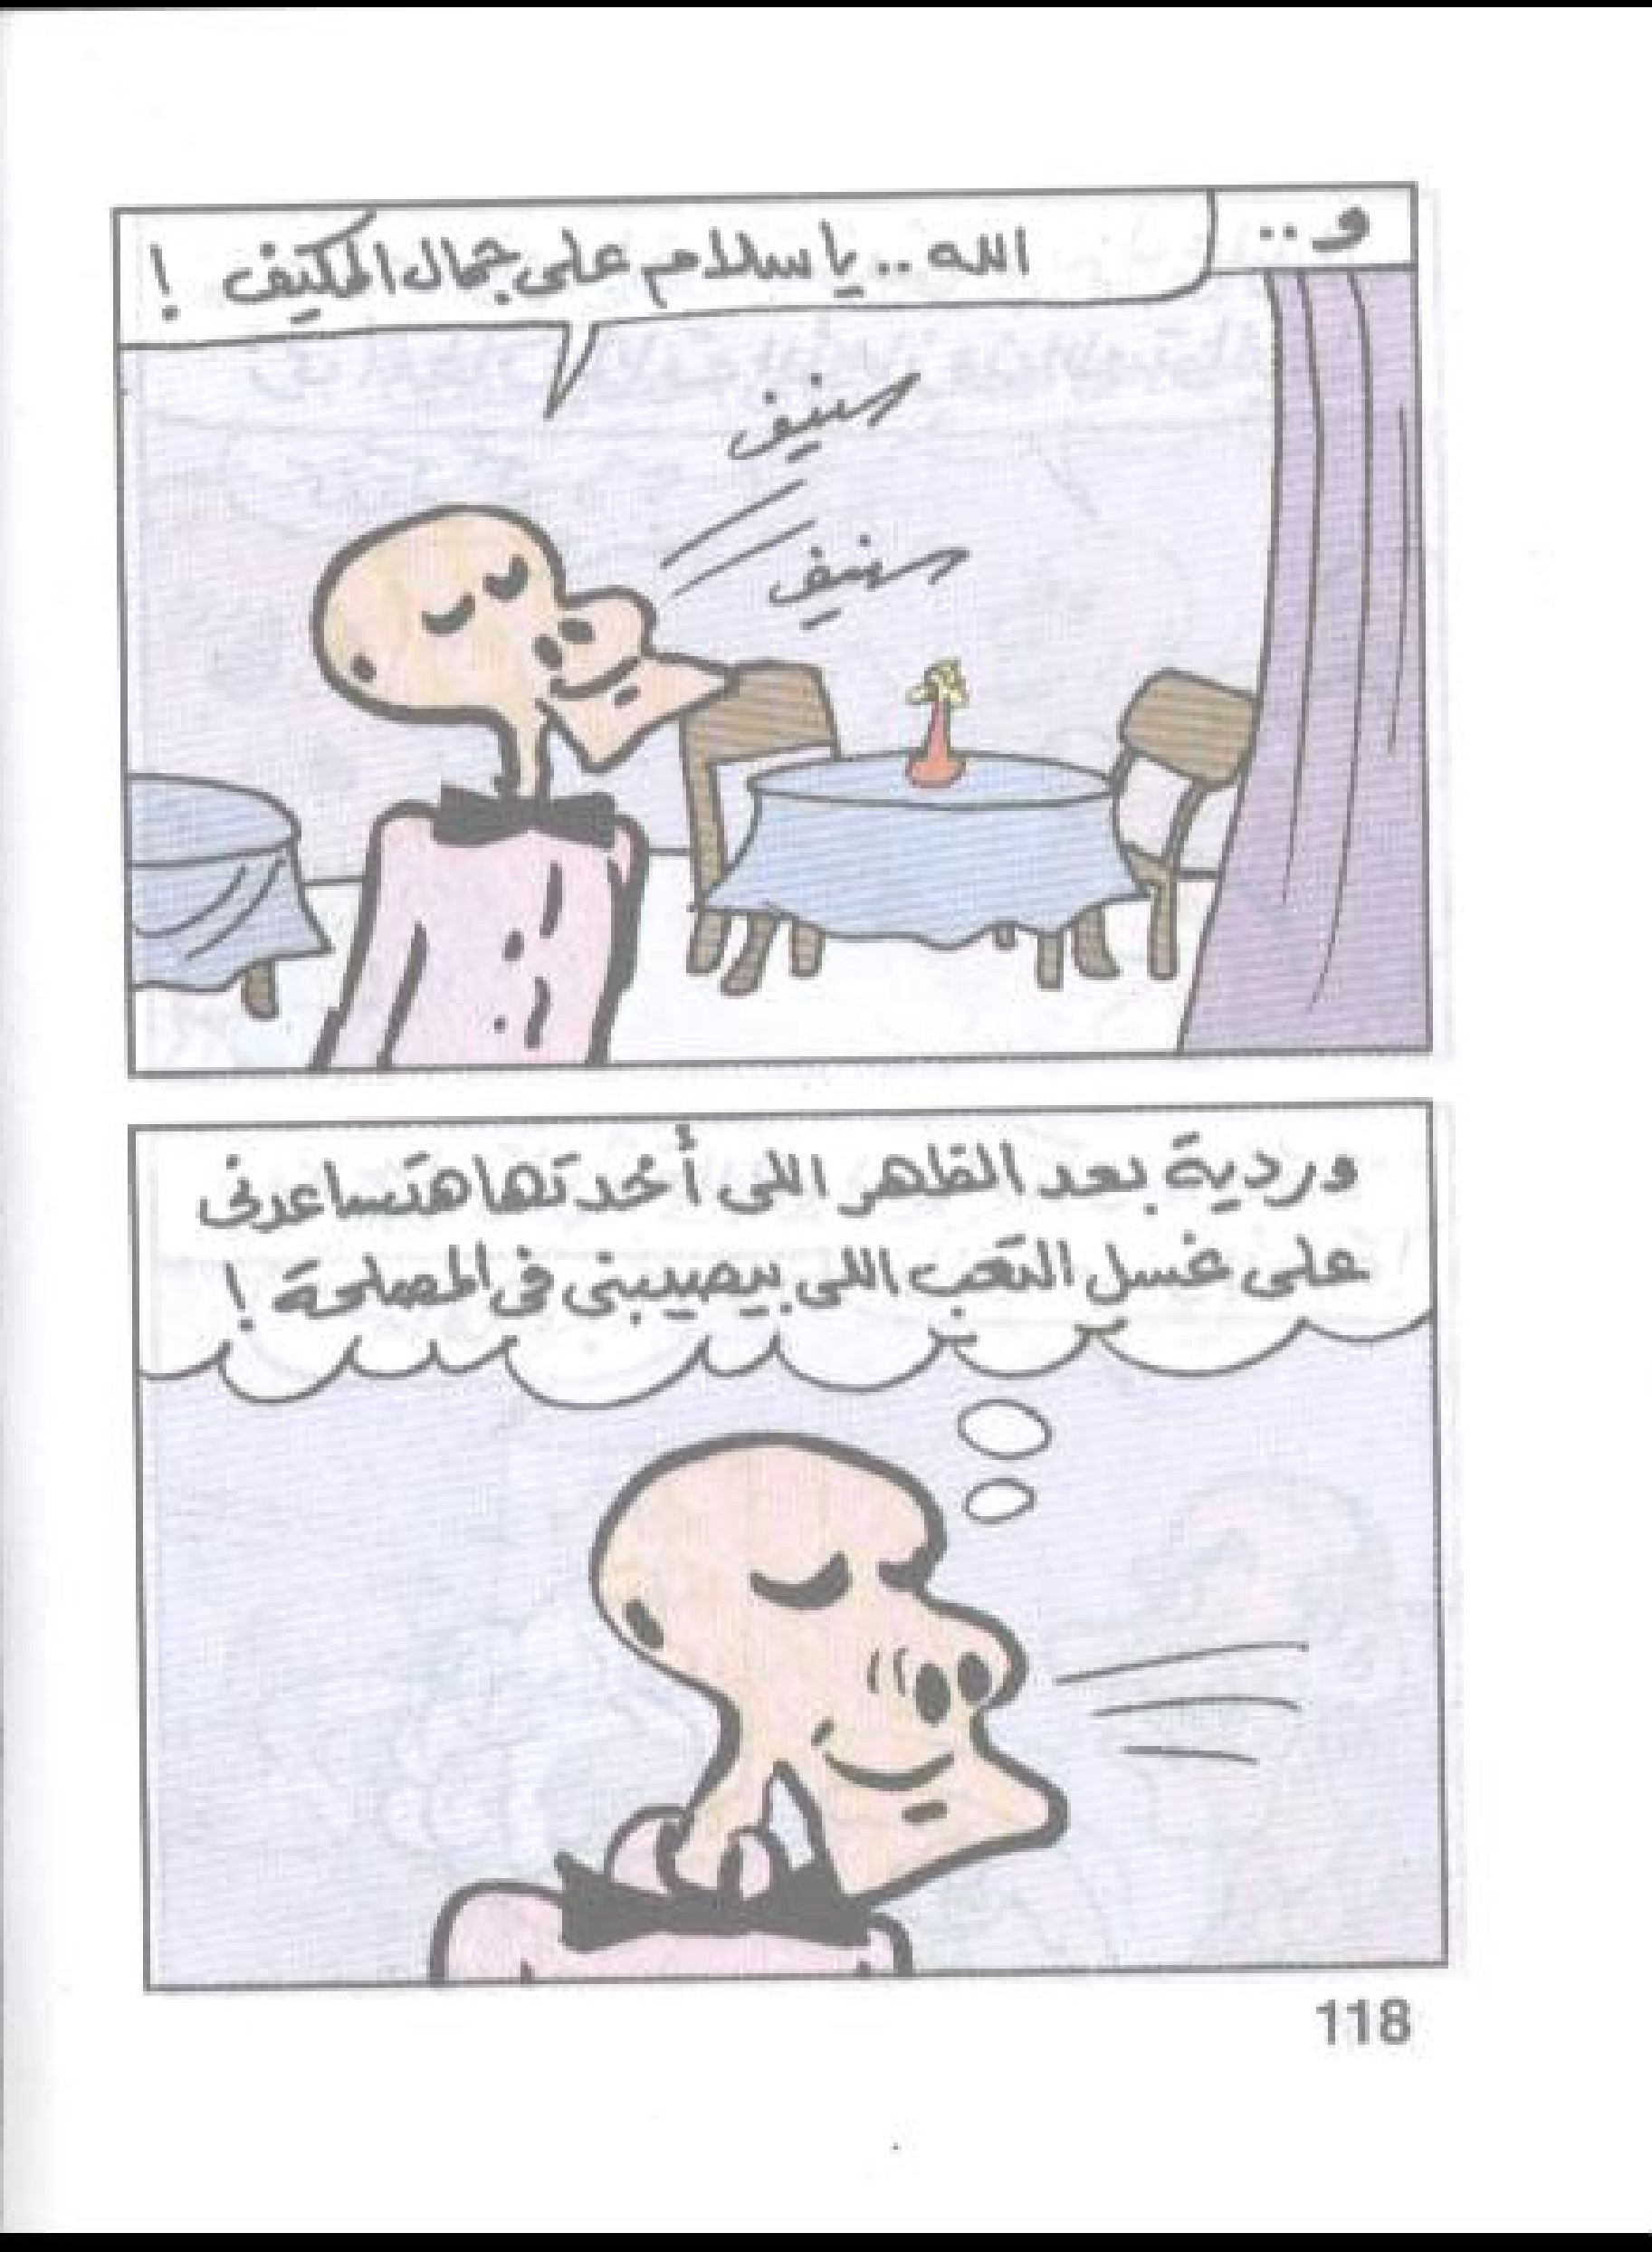 و..
الله .. يا سلام على جمال المكيف !
سنيف
سنيف
وردية بعد الظهر اللى أخدتها هتساعدنى
على غسل التعب اللى بيصيبنى فى المصلحة !
118